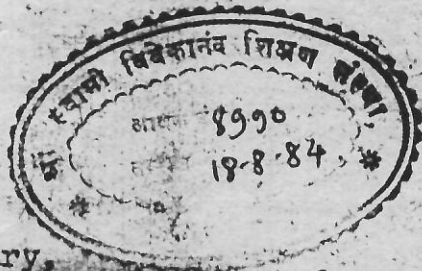 स्वामी विवेकानंद शिक्षण संस्था,
8990
18-8-84
ry,